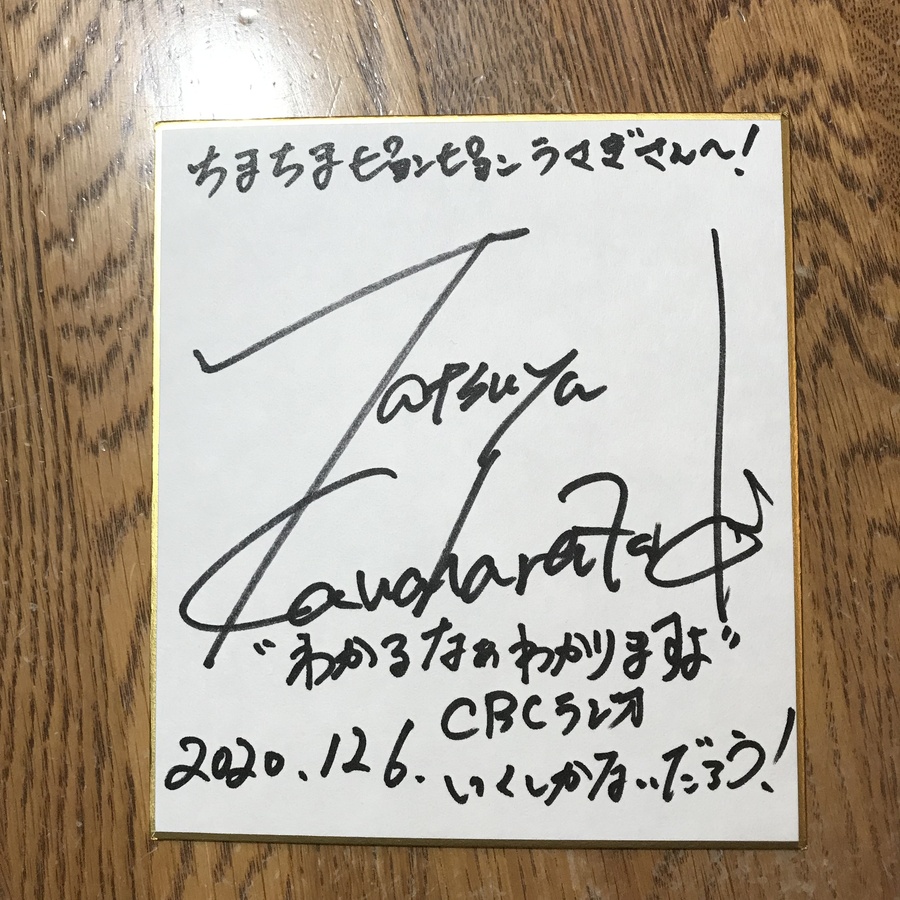 ちまちまピョンピョンうさぎさんへ!
Tatsuya
"わかるなぁわかりますよ"
CBCラジオ
2020.12 6. いくしかないだろう!